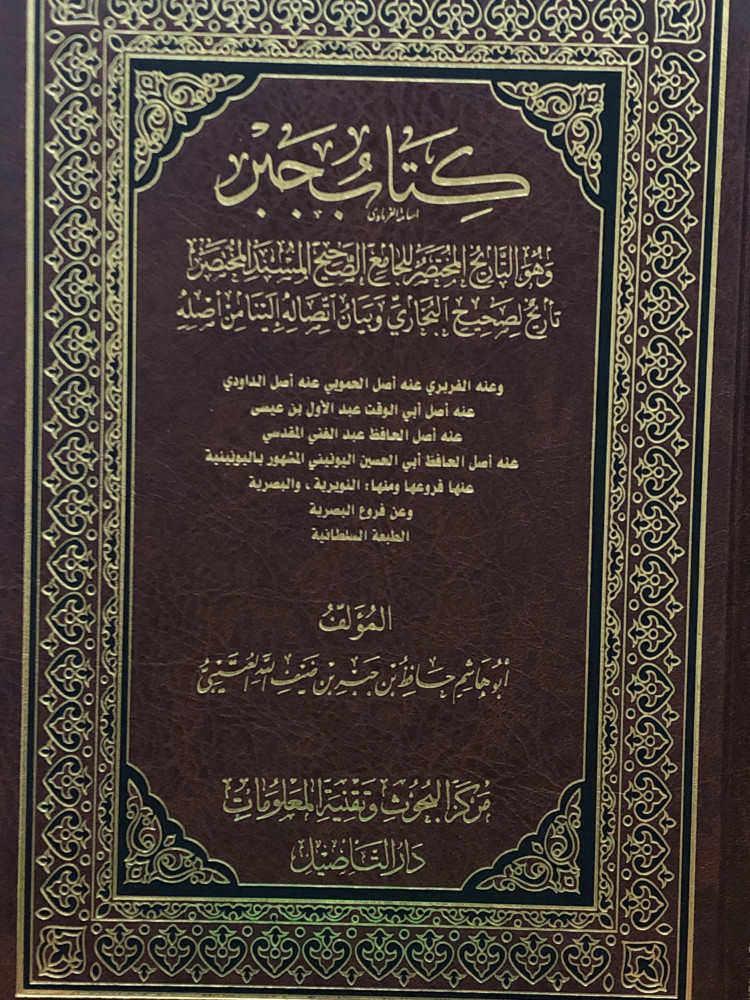 كِتَابُ جَبْر
وَهُوَ التَّارِيخُ المُخْتَصَرُ لِلجَامِعِ الصَّحِيحِ المُسْنَدِ المُخْتَصَرِ
تَارِيخٌ لِصَحِيحِ البُخَارِيِّ وَبَيَانُ اتِّصَالِهِ إِلَيْنَا مِنْ أَصْلِهِ
وعنه الفربري عنه أصل الحمويي عنه أصل الداودي
عنه أصل أبي الوقت عبد الأول بن عيسى
عنه أصل الحافظ عبد الغني المقدسي
عنه أصل الحافظ أبي الحسين اليونيني المشهور باليونينية
عنها فروعها ومنها: النويرية ، والبصرية
وعن فروع البصرية
الطبعة السلطانية
المُؤَلِّفُ
أبو هاشم حافظ بن جبر بن ضيف الله
مَرْكَزُ البُحُوثِ وَتِقْنِيَةِ المَعْلُومَاتِ
دَارُ التَّأصِيلِ